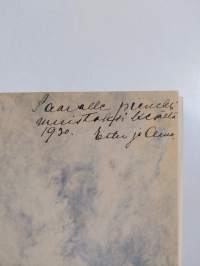 Saaralle pieneksi
muistoksi kesältä
1930. Esteri ja Aino.